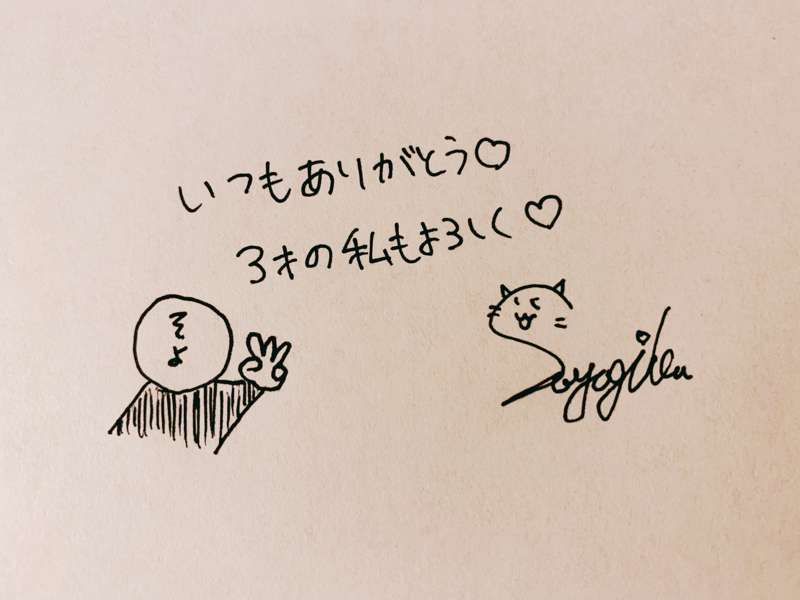 いつもありがとう♡
3才の私もよろしく♡
そよ
Soyogiku